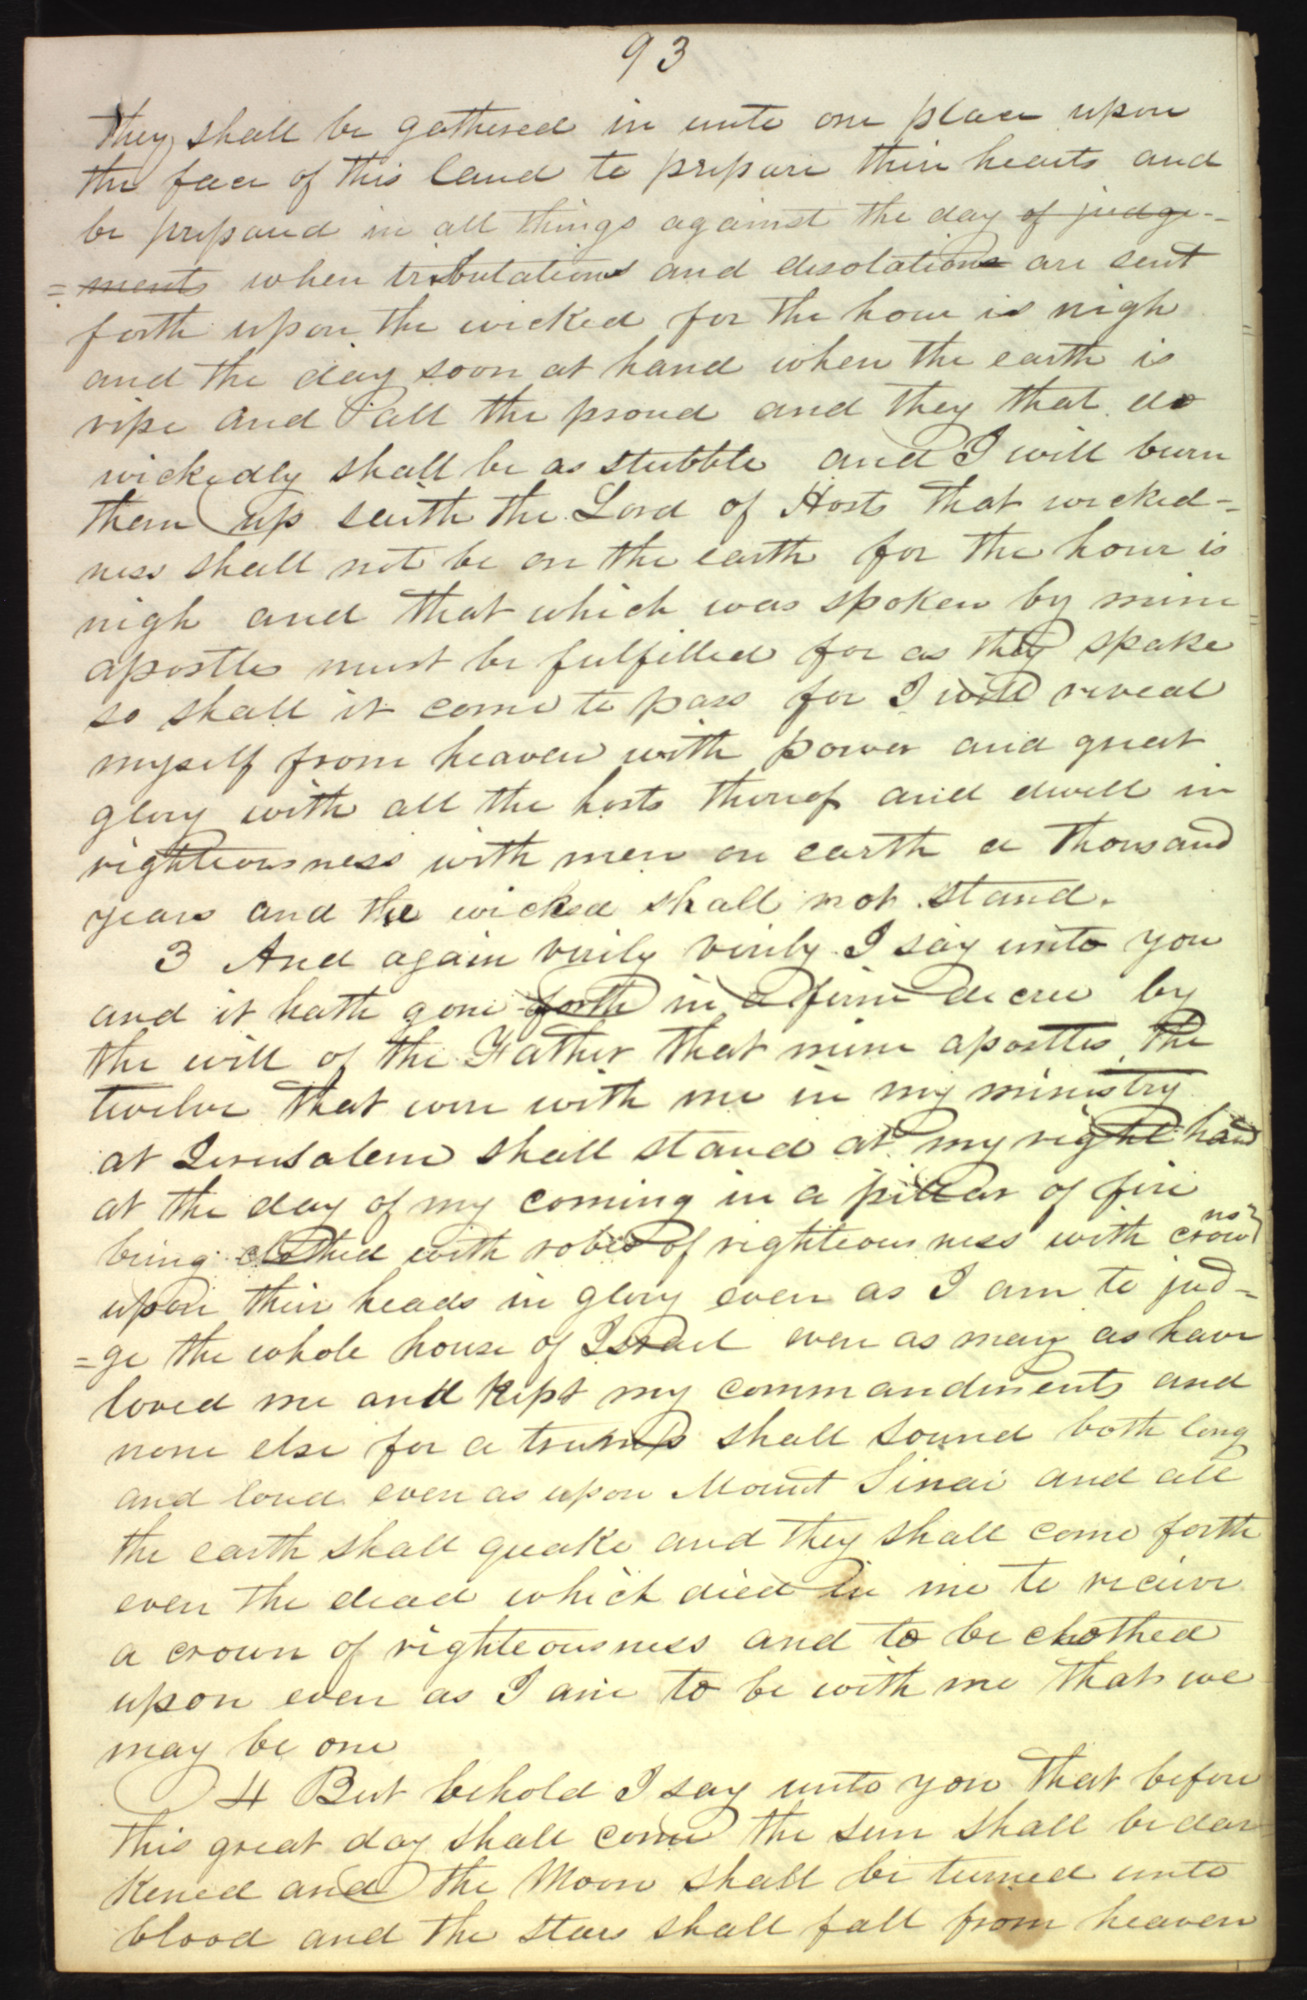 93
they shall be gathered in unto one place upon
the face of this land to prepare their hearts and
be prepared in all things against the day of judge-
=ment when tribulation and desolation are sent
forth upon the wicked for the hour is nigh
and the day soon at hand when the earth is
ripe and all the proud and they that do
wickedly shall be as stubble and I will burn
them up saith the Lord of Hosts that wicked-
ness shall not be on the earth for the hour is
nigh and that which was spoken by mine
apostles must be fulfilled for as they spake
so shall it come to pass for I will reveal
myself from heaven with power and great
glory with all the hosts thereof and dwell in
righteousness with men on earth a thousand
years and the wicked shall not stand.
3 And again verily verily I say unto you
and it hath gone forth in a firm decree by
the will of the Father that mine apostles the
twelve that were with me in my ministry
at Jerusalem shall stand at my right hand
at the day of my coming in a pillar of fire
being clothed with robes of righteousness with crowns
upon their heads in glory even as I am to jud-
=ge the whole house of Israel even as many as have
loved me and kept my commandments and
none else for a trump shall sound both long
and loud even as upon Mount Sinai and all
the earth shall quake and they shall come forth
even the dead which died in me to recieve
a crown of righteousness and to be clothed
upon even as I am to be with me that we
may be one
4 But behold I say unto you that before
this great day shall come the sun shall be dar
kened and the Moon shall be turned unto
blood and the stars shall fall from heaven